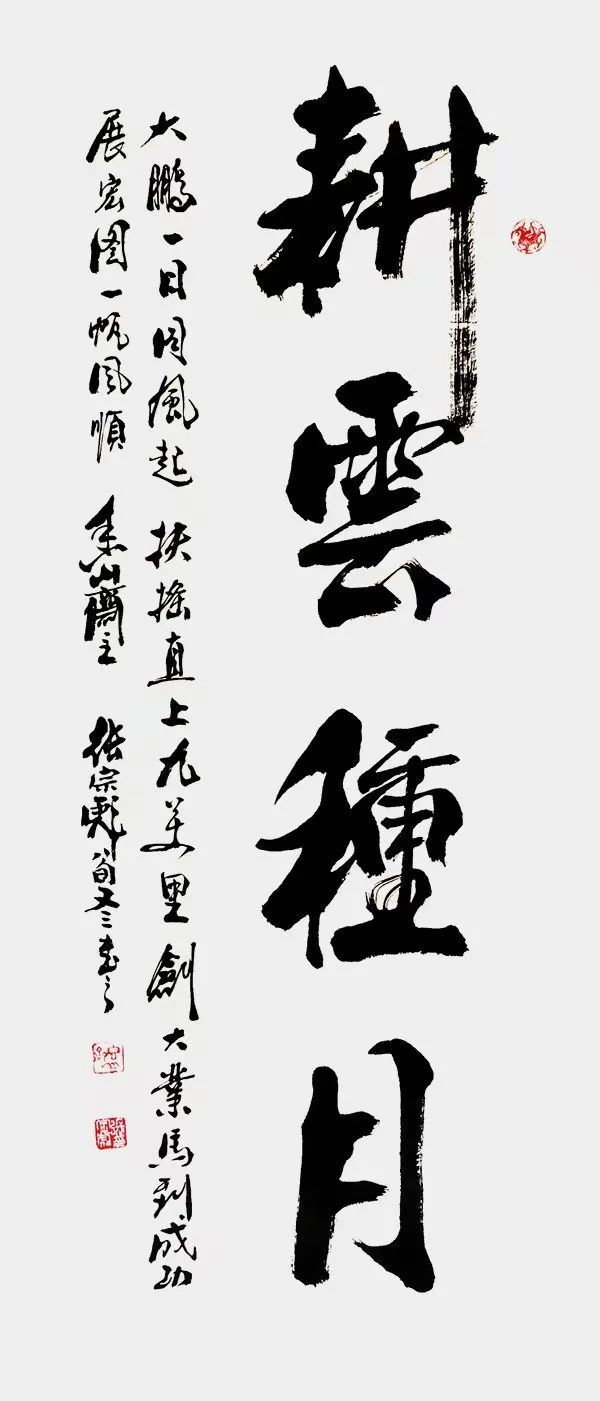 耕雲種月
大鵬一日同風起 扶搖直上九萬里 創大業馬到成功
展宏图一帆風順 山齋主 張宗彪